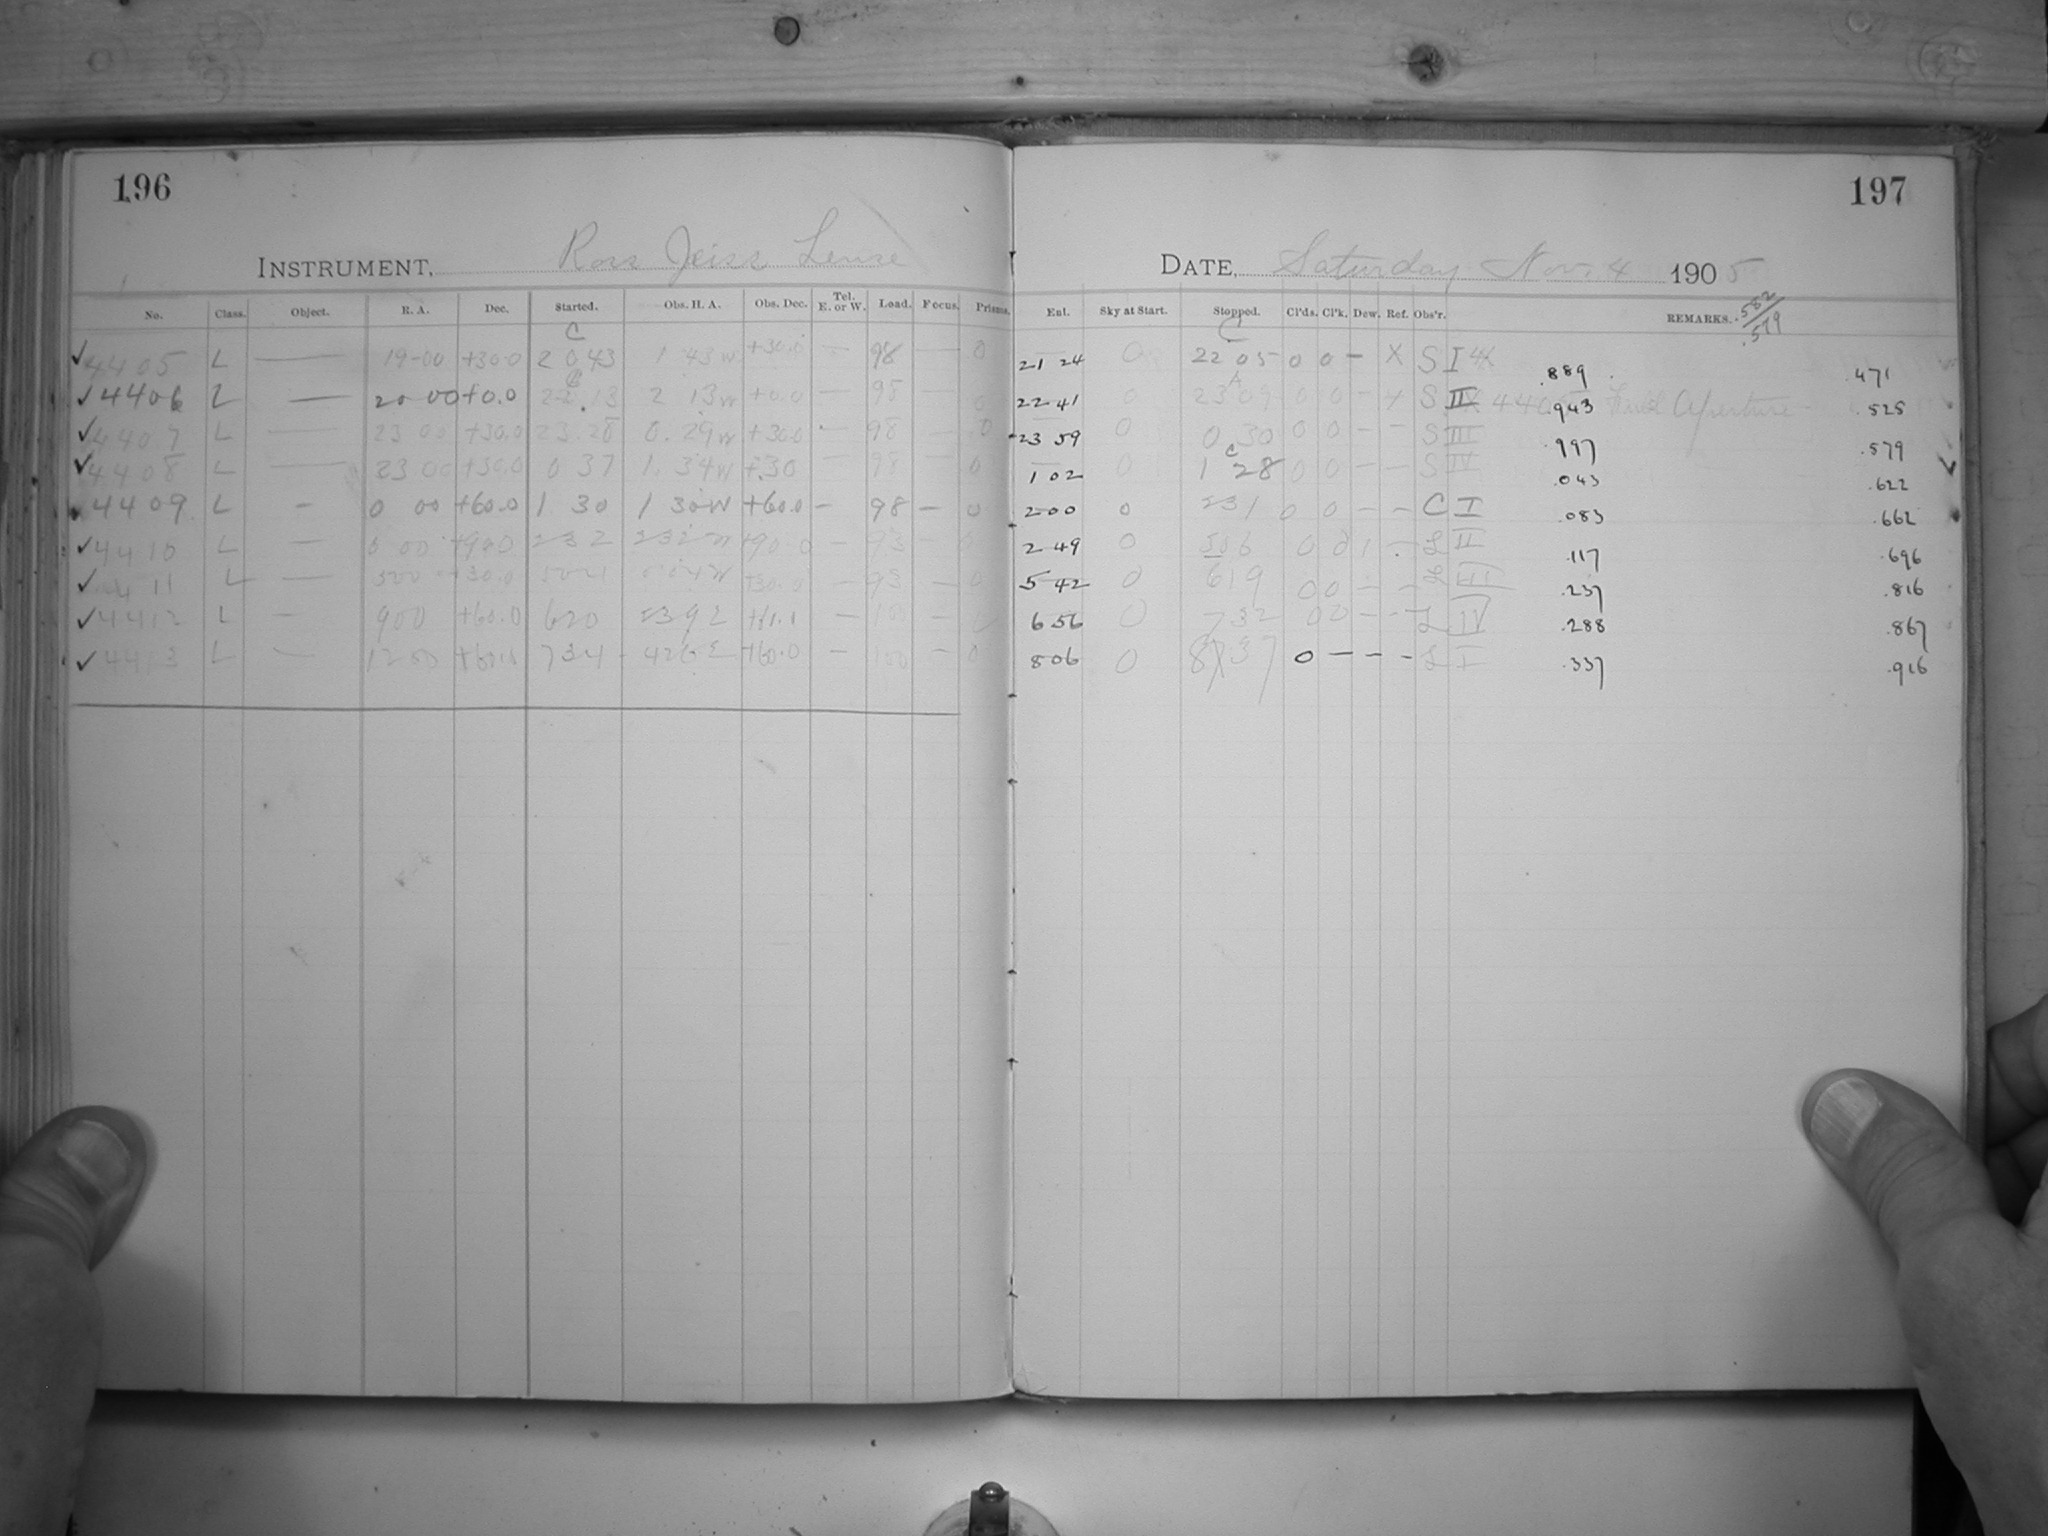 196
INSTRUMENT, Ross Zeiss Lense
No. Class. Object. R. A. Dec. Started. Obs. H. A. Obs. Dec. Tel. E. or W. Load. Focus. Prisms.
C
✓ 4405 L — 19-00 +30.0 20 43 1 43 W +30.0 — 98 — 0
✓ 4406 L — 20 00 +0.0 22.13 2 13 W +0.0 — 98 0
✓ 4407 L — 23 00 +30.0 23.28 0.29 W +30.0 — 98 — 0
✓ 4408 L — 23 00 +30.0 0 37 1.34 W +.30 — 98 — 0
4409 L — 0 00 +60.0 1 30 1 30 W +60.0 — 98 — 0
✓ 4410 L — 0 00 +90.0 2 32 2 32 W +90.0 — 93 — 0
✓ 4411 L — 500 +30.0 504 0.04 W +30.0 — 93 — 0
✓ 4412 L — 900 +60.0 620 239 E +61.1 — 100 — 0
✓ 4413 L — 1200 +60.0 734 426 E +60.0 — 100 — 0
197
DATE, Saturday Nov. 4 1905
Ent. Sky at Start. Stopped. Cl'ds. Cl'k. Dew. Ref. Obs'r. REMARKS. .582 / .579
C
21 24 0 22 05 0 0 — X S I .889 .471
22 41 0 23 09 0 0 — S III .943 Aperture .525
23 59 0 0 30 0 0 — — S III .997 .579
C
1 02 0 1 28 0 0 — — S IV .043 .622
2 00 0 231 0 0 — — C I .083 .662
2 49 0 506 0 0 — L II .117 .696
5 42 0 619 0 0 — — L III .237 .816
6 56 0 732 0 0 — — L IV .288 .867
8 06 0 837 0 — — — L I .337 .916